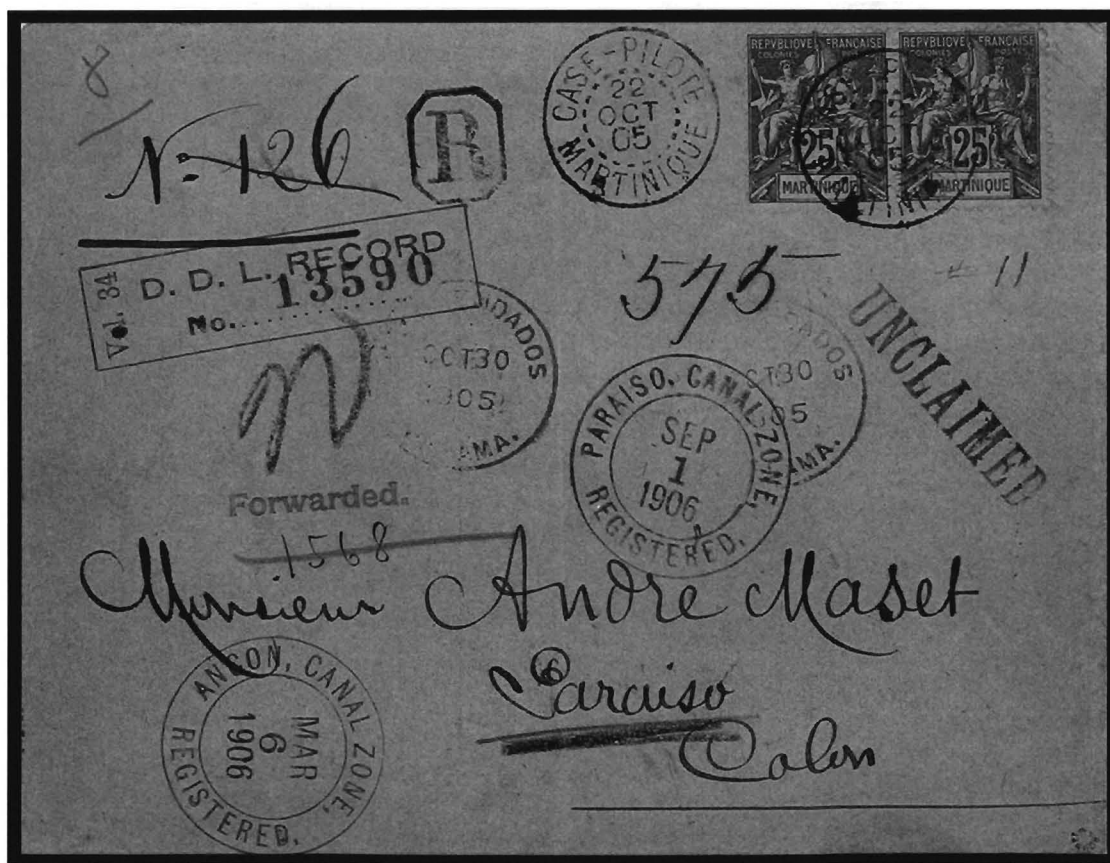 8
Nº 126
R
CASE-PILOTE
22
OCT
05
MARTINIQUE
REPVBLIQUE FRANÇAISE
COLONIES POSTES
25
MARTINIQUE
REPVBLIQUE FRANÇAISE
COLONIES POSTES
25
MARTINIQUE
Vol. 34
D. D. L. RECORD
No. 13590
OCT 30
1905
575
11
UNCLAIMED
OCT 30
05
AMA.
PARAISO, CANAL ZONE,
SEP
1
1906
REGISTERED.
Forwarded.
1568
Monsieur Andre Maset
Paraiso
Colon
ANCON, CANAL ZONE,
MAR
6
1906
REGISTERED.